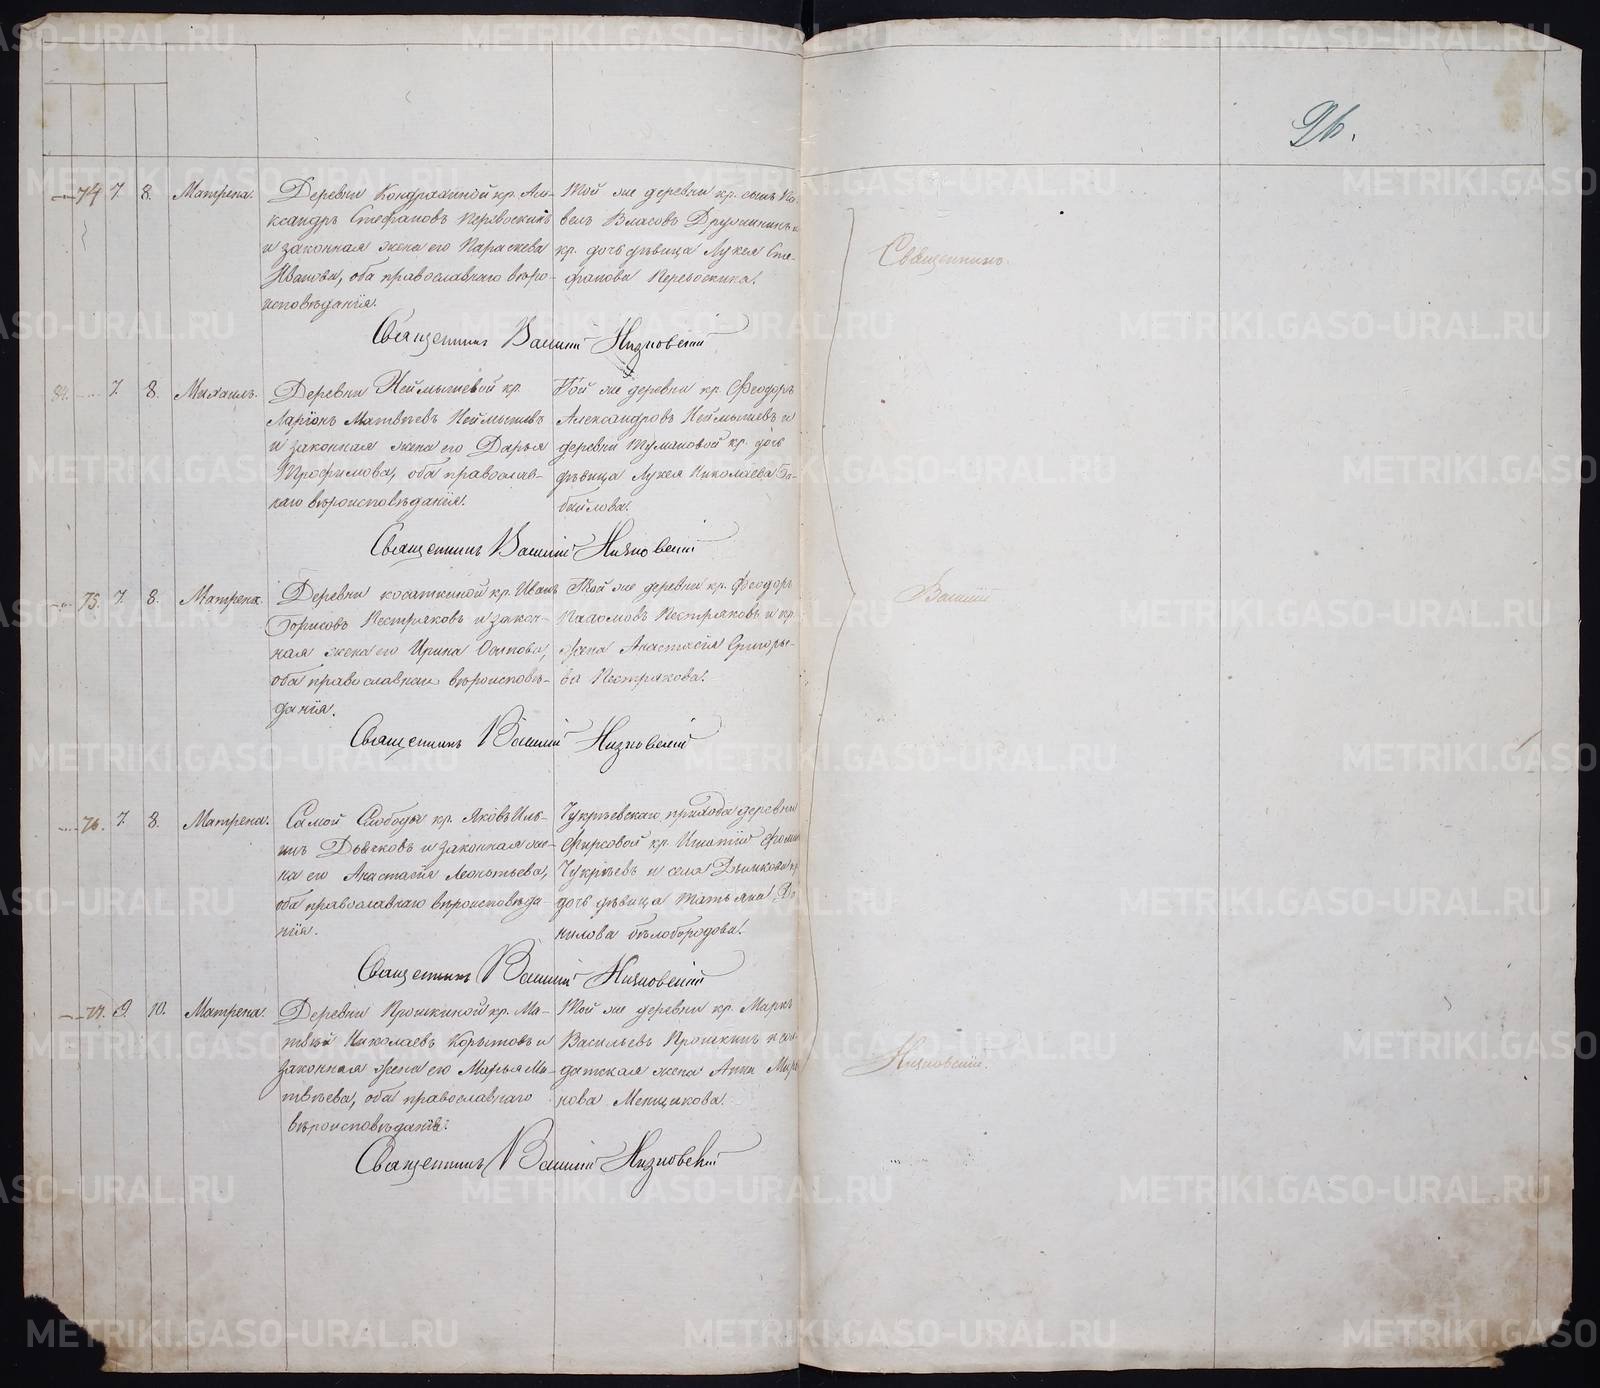 26.
74 7. 8. Матрена. Деревни Кондрахиной кр. Але-
ксандръ Стефановъ Перевоскинъ
и законная жена его Параскева
Иванова, оба православнаго вѣро-
исповѣданія.
Той же деревни кр. сынъ Па-
велъ Власовъ Дружининъ и
кр. дочь дѣвица Лукея Сте-
фанова Перевоскина.
Священникъ Василій Низковскій
7. 8. Михаилъ. Деревни Неймышевой кр.
Ларіонъ Матвѣевъ Неймышевъ
и законная жена его Дарья
Трофимова, оба православ-
наго вѣроисповѣданія.
Той же деревни кр. Феодоръ
Александровъ Неймышевъ и
деревни Тумановой кр. дочь
дѣвица Лукея Николаева Ба-
байлова.
Священникъ Василій Низковскій
75. 7. 8. Матрена. Деревни Косаткиной кр. Иванъ
Борисовъ Пестряковъ и закон-
ная жена его Ирина Осипова,
оба православнаго вѣроисповѣ-
данія.
Той же деревни кр. Феодоръ
Пахомовъ Пестряковъ и кр.
жена Анастасія Григорье-
ва Пестрякова.
Священникъ Василій Низковскій
76. 7. 8. Матрена. Самой Слободы кр. Яковъ Иль-
инъ Дьячковъ и законная же-
на его Анастасія Леонтьева,
оба православнаго вѣроисповѣда
нія.
Чукреевскаго прихода деревни
Фирсовой кр. Игнатій Фомин
Чукреевъ и села
дочь дѣвица Татьяна Да
нилова Бѣлобородова.
Священникъ Василій Низковскій
77. 9. 10. Матрена. Деревни Прошкиной кр. Ма-
твѣй Николаевъ Корытовъ и
законная жена его Марья Ма-
твѣева, оба православнаго
вѣроисповѣданія.
Той же деревни кр. Маркъ
Васильевъ Прошкинъ и сол-
датская жена Анна Миро
нова Меньщикова.
Священникъ Василій Низковскій
Священникъ
Василій
Низковскій.
METRIKI.GASO-URAL.RU